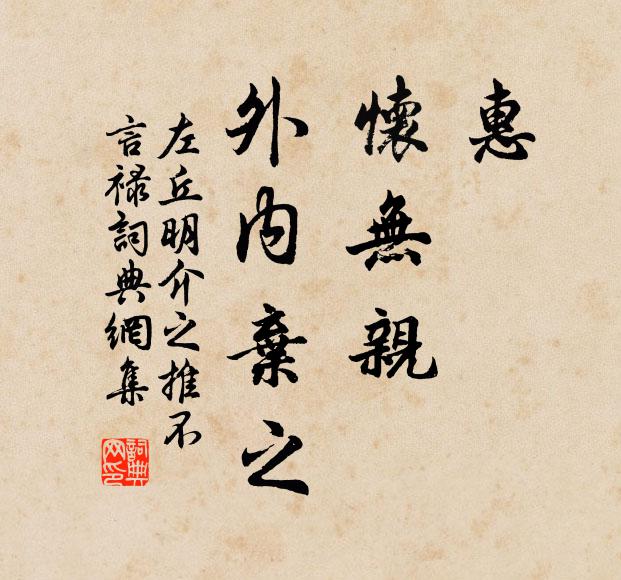 惠
懷無親
外內棄之
左丘明介之推不
言祿詞典網集
詞典
网印